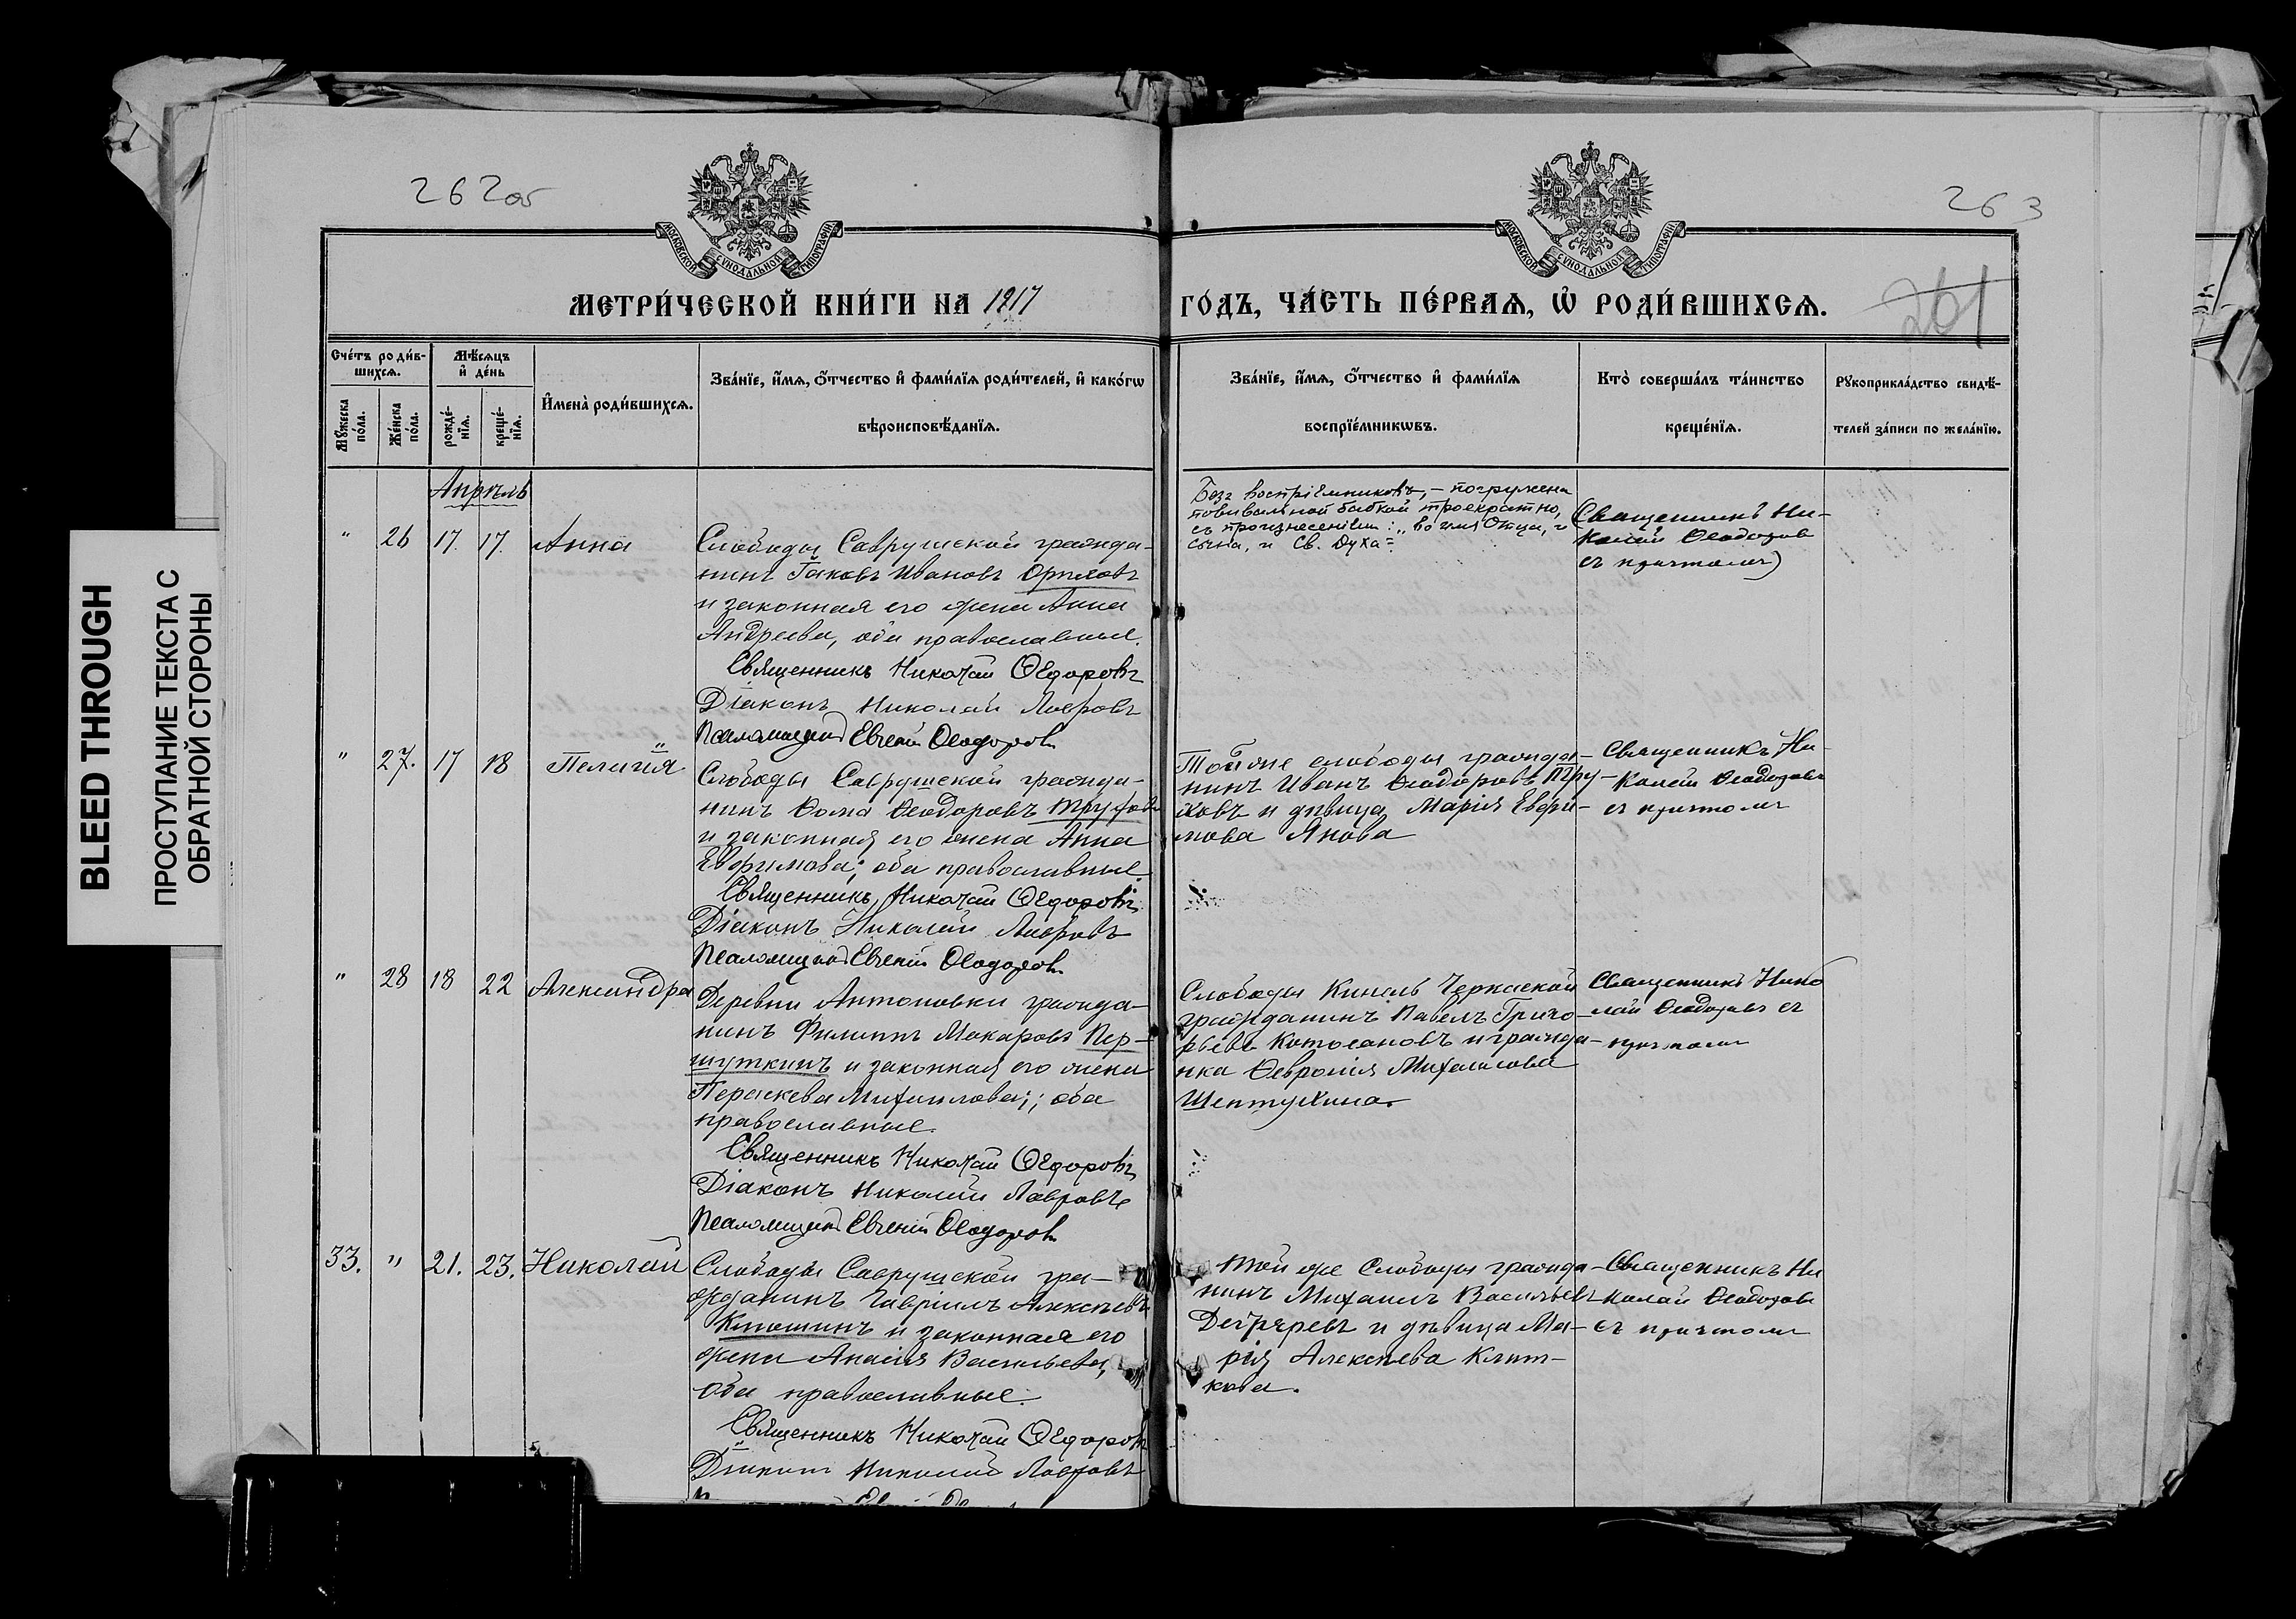 262об
263
261
МОСКОВСКОЙ СѴНОДАЛЬНОЙ ТИПОГРАФІИ
МОСКОВСКОЙ СѴНОДАЛЬНОЙ ТИПОГРАФІИ
МЕТРИ́ЧЕСКОЙ КНИ́ГИ НА 1917 ГО́ДЪ, ЧА́СТЬ ПЕ́РВАѦ, Ѡ҆ РОДИ́ВШИХСѦ.
Сче́тъ роди́в-
шихсѧ.
Мꙋ́жеска
по́ла.
Же́нска
по́ла.
Мѣ́сѧцъ
и҆ де́нь
рожде́-
нїѧ.
креще́-
нїѧ.
И҆мена̀ роди́вшихсѧ.
Зва́нїе, и҆́мѧ, ѻ҆́тчество и҆ фами́лїѧ роди́телей, и҆ како́гѡ
вѣроисповѣ́данїѧ.
Зва́нїе, и҆́мѧ, ѻ҆́тчество и҆ фами́лїѧ
воспрїе́мникѡвъ.
Кто̀ соверша́лъ та́инство
креще́нїѧ.
Рꙋкоприкла́дство свидѣ́-
телей за́писи по жела́нїю.
Апрѣль
" 26 17. 17. Анна
Слободы Саврушской гражда-
нинъ Іаковъ Ивановъ Орловъ
и законная его жена Анна
Андреева, оба православные.
Священникъ Николай Ѳедоровъ
Діаконъ Николай Лавровъ
Псаломщикъ Евгеній Ѳеодоровъ
Безъ воспріемниковъ, – погружена
повивальной бабкой троекратно,
съ произнесеніем: „во имя Отца, и
Сына, и Св. Духа".
Священникъ Ни-
колай Ѳеодоров
съ причтомъ
" 27. 17 18 Пелагія
Слободы Саврушской гражда-
нинъ Ѳома Ѳеодоровъ Труховъ
и законная его жена Анна
Евфимова; оба православные.
Священникъ Николай Ѳедоровъ
Діаконъ Николай Лавровъ
Псаломщикъ Евгеній Ѳеодоровъ
Той же слободы гражда-
нинъ Иванъ Ѳеодоровъ Тру-
ховъ и дѣвица Марія Евфи-
мова Янова
Священникъ Ни-
колай Ѳеодоровъ
съ причтомъ
" 28 18 22 Александра
Деревни Антоновки гражда-
нинъ Филиппъ Макаровъ Пер-
шуткинъ и законная его жена
Параскева Михаилова; оба
православные.
Священникъ Николай Ѳедоровъ
Діаконъ Николай Лавровъ
Псаломщикъ Евгеній Ѳеодоровъ
Слободы Кинель Черкаской
гражданинъ Павелъ Григо-
рьевъ и гражда-
нка Ѳевронія Михаилова
Шептухина.
Священникъ Нико
лай Ѳеодоровъ съ
причтомъ
33. " 21. 23. Николай
Слободы Саврушской гра-
жданинъ Гавріилъ Алексѣевъ
Клюшинъ и законная его
жена Васильева,
оба православные.
Священникъ Николай Ѳедоровъ
Діаконъ Николай Лавровъ
Той же Слободы гражда-
нинъ Михаилъ Васильевъ
Дегтяревъ и дѣвица Ма-
рія Алексѣева
Священникъ Ни
колай Ѳеодоровъ
съ причтомъ
BLEED THROUGH
ПРОСТУПАНИЕ ТЕКСТА С
ОБРАТНОЙ СТОРОНЫ